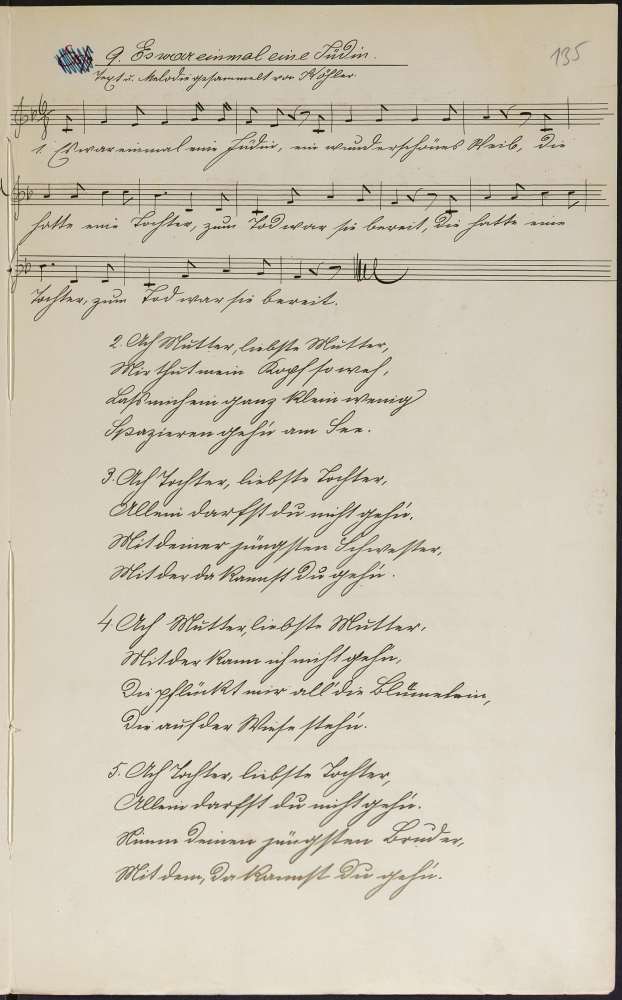 9. Es war einmal eine Jüdin.
135
Text u. Melodie gesammelt von Köhler.
1. Es war einmal eine Jüdin, ein wunderschönes Weib, die
hatte eine Tochter, zum Tod war sie bereit, die hatte eine
Tochter, zum Tod war sie bereit.
2. Ach Mutter, liebste Mutter,
Mir thut mein Kopf so weh,
Lass mich ein ganz klein wenig
Spazieren gehn am See.
3. Ach Tochter, liebste Tochter,
Allein darfst du nicht gehn,
Mit deiner jüngsten Schwester,
Mit der da kannst du gehn.
4 Ach Mutter, liebste Mutter,
Mit der kann ich nicht gehn,
Die pflückt mir all' die Blümelein,
Die auf der Wiese stehn.
5. Ach Tochter, liebste Tochter,
Allein darfst du nicht gehn.
Nimm deinen jüngsten Bruder,
Mit dem, da kannst du gehn.